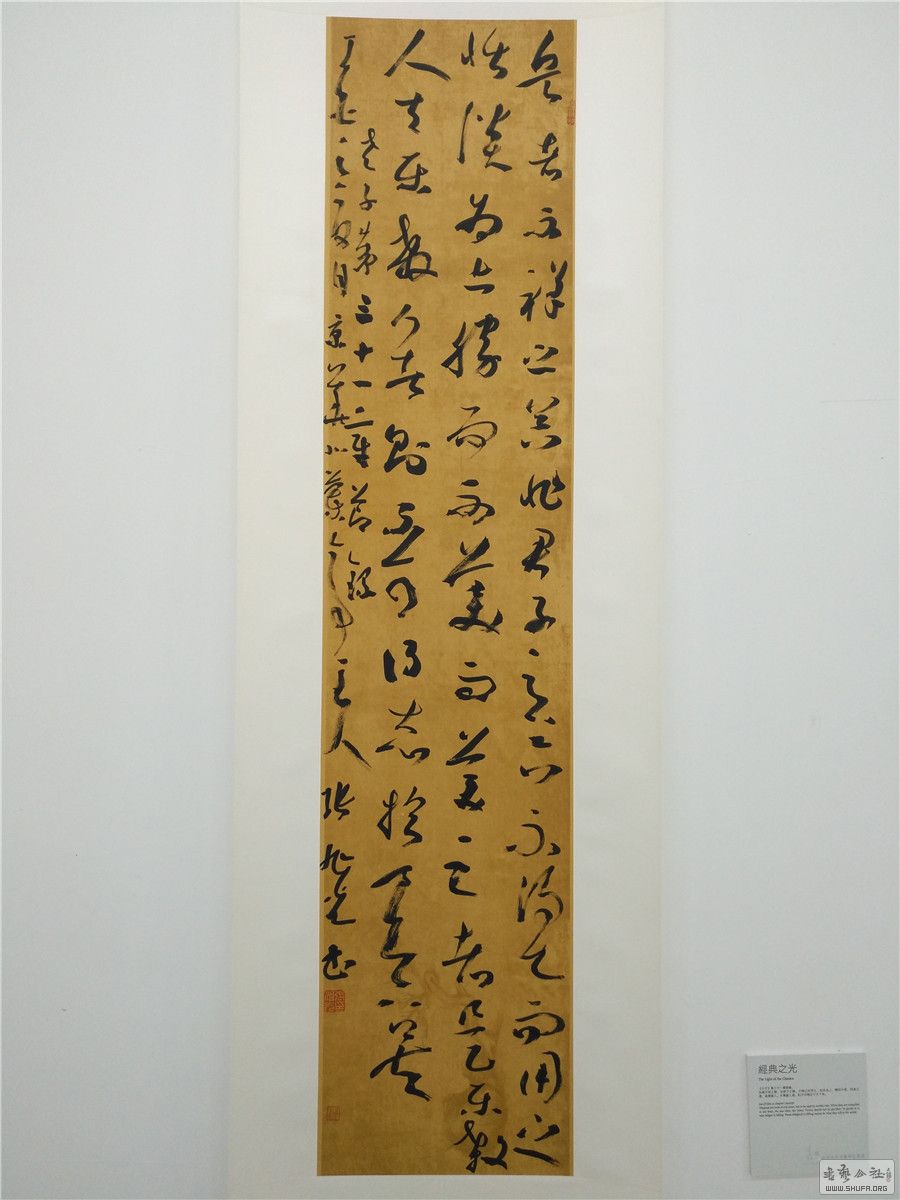 兵者不祥之器非君子之器不得已而用之
恬淡為上勝而不美而美之者是樂殺
人夫樂殺人者則不可以得志於天下矣
老子第三十一章節錄
丁酉之 月京華 主人張旭光書
經典之光
The Light of the Classics
书艺公社
WWW.SHUFA.ORG